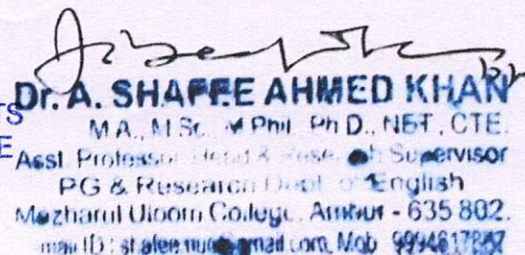 TS
E
Dr. A. SHAFEE AHMED KHAN
M.A., M.Sc., M.Phil., Ph.D., NET, CTE.
Asst. Professor, Head & Research Supervisor
PG & Research Dept. of English
Mazharul Uloom College, Ambur - 635 802.
mail ID : Mob 9994617867